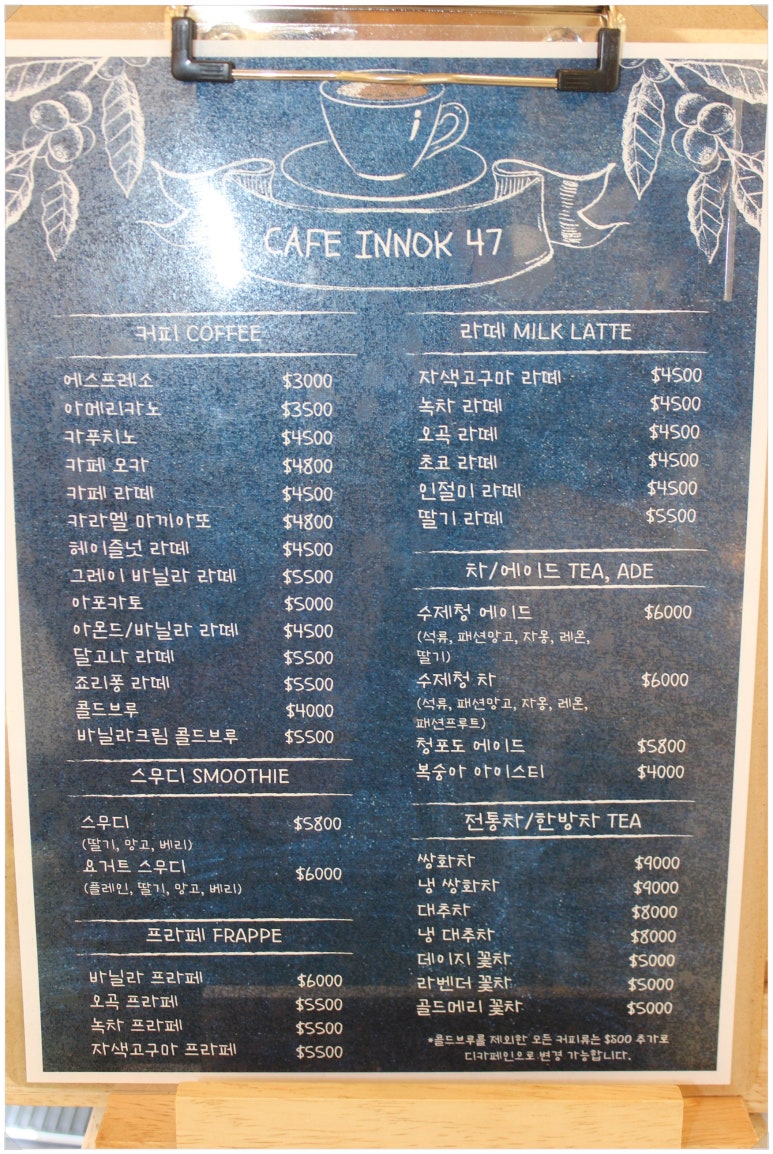 CAFE INNOK 47
커피 COFFEE
에스프레소 $3000
아메리카노 $3500
카푸치노 $4500
카페 모카 $4800
카페 라떼 $4500
카라멜 마끼아또 $4800
헤이즐넛 라떼 $4500
그레이 바닐라 라떼 $5500
아포카토 $5000
아몬드/바닐라 라떼 $4500
달고나 라떼 $5500
죠리퐁 라떼 $5500
콜드브루 $4000
바닐라크림 콜드브루 $5500
스무디 SMOOTHIE
스무디 $5800
(딸기, 망고, 베리)
요거트 스무디 $6000
(플레인, 딸기, 망고, 베리)
프라페 FRAPPE
바닐라 프라페 $6000
오곡 프라페 $5500
녹차 프라페 $5500
자색고구마 프라페 $5500
라떼 MILK LATTE
자색고구마 라떼 $4500
녹차 라떼 $4500
오곡 라떼 $4500
초코 라떼 $4500
인절미 라떼 $4500
딸기 라떼 $5500
차/에이드 TEA, ADE
수제청 에이드 $6000
(석류, 패션망고, 자몽, 레몬,
딸기)
수제청 차 $6000
(석류, 패션망고, 자몽, 레몬,
패션프루트)
청포도 에이드 $5800
복숭아 아이스티 $4000
전통차/한방차 TEA
쌍화차 $9000
냉 쌍화차 $9000
대추차 $8000
냉 대추차 $8000
데이지 꽃차 $5000
라벤더 꽃차 $5000
골드메리 꽃차 $5000
*콜드브루를 제외한 모든 커피류는 $500 추가로
디카페인으로 변경 가능합니다.